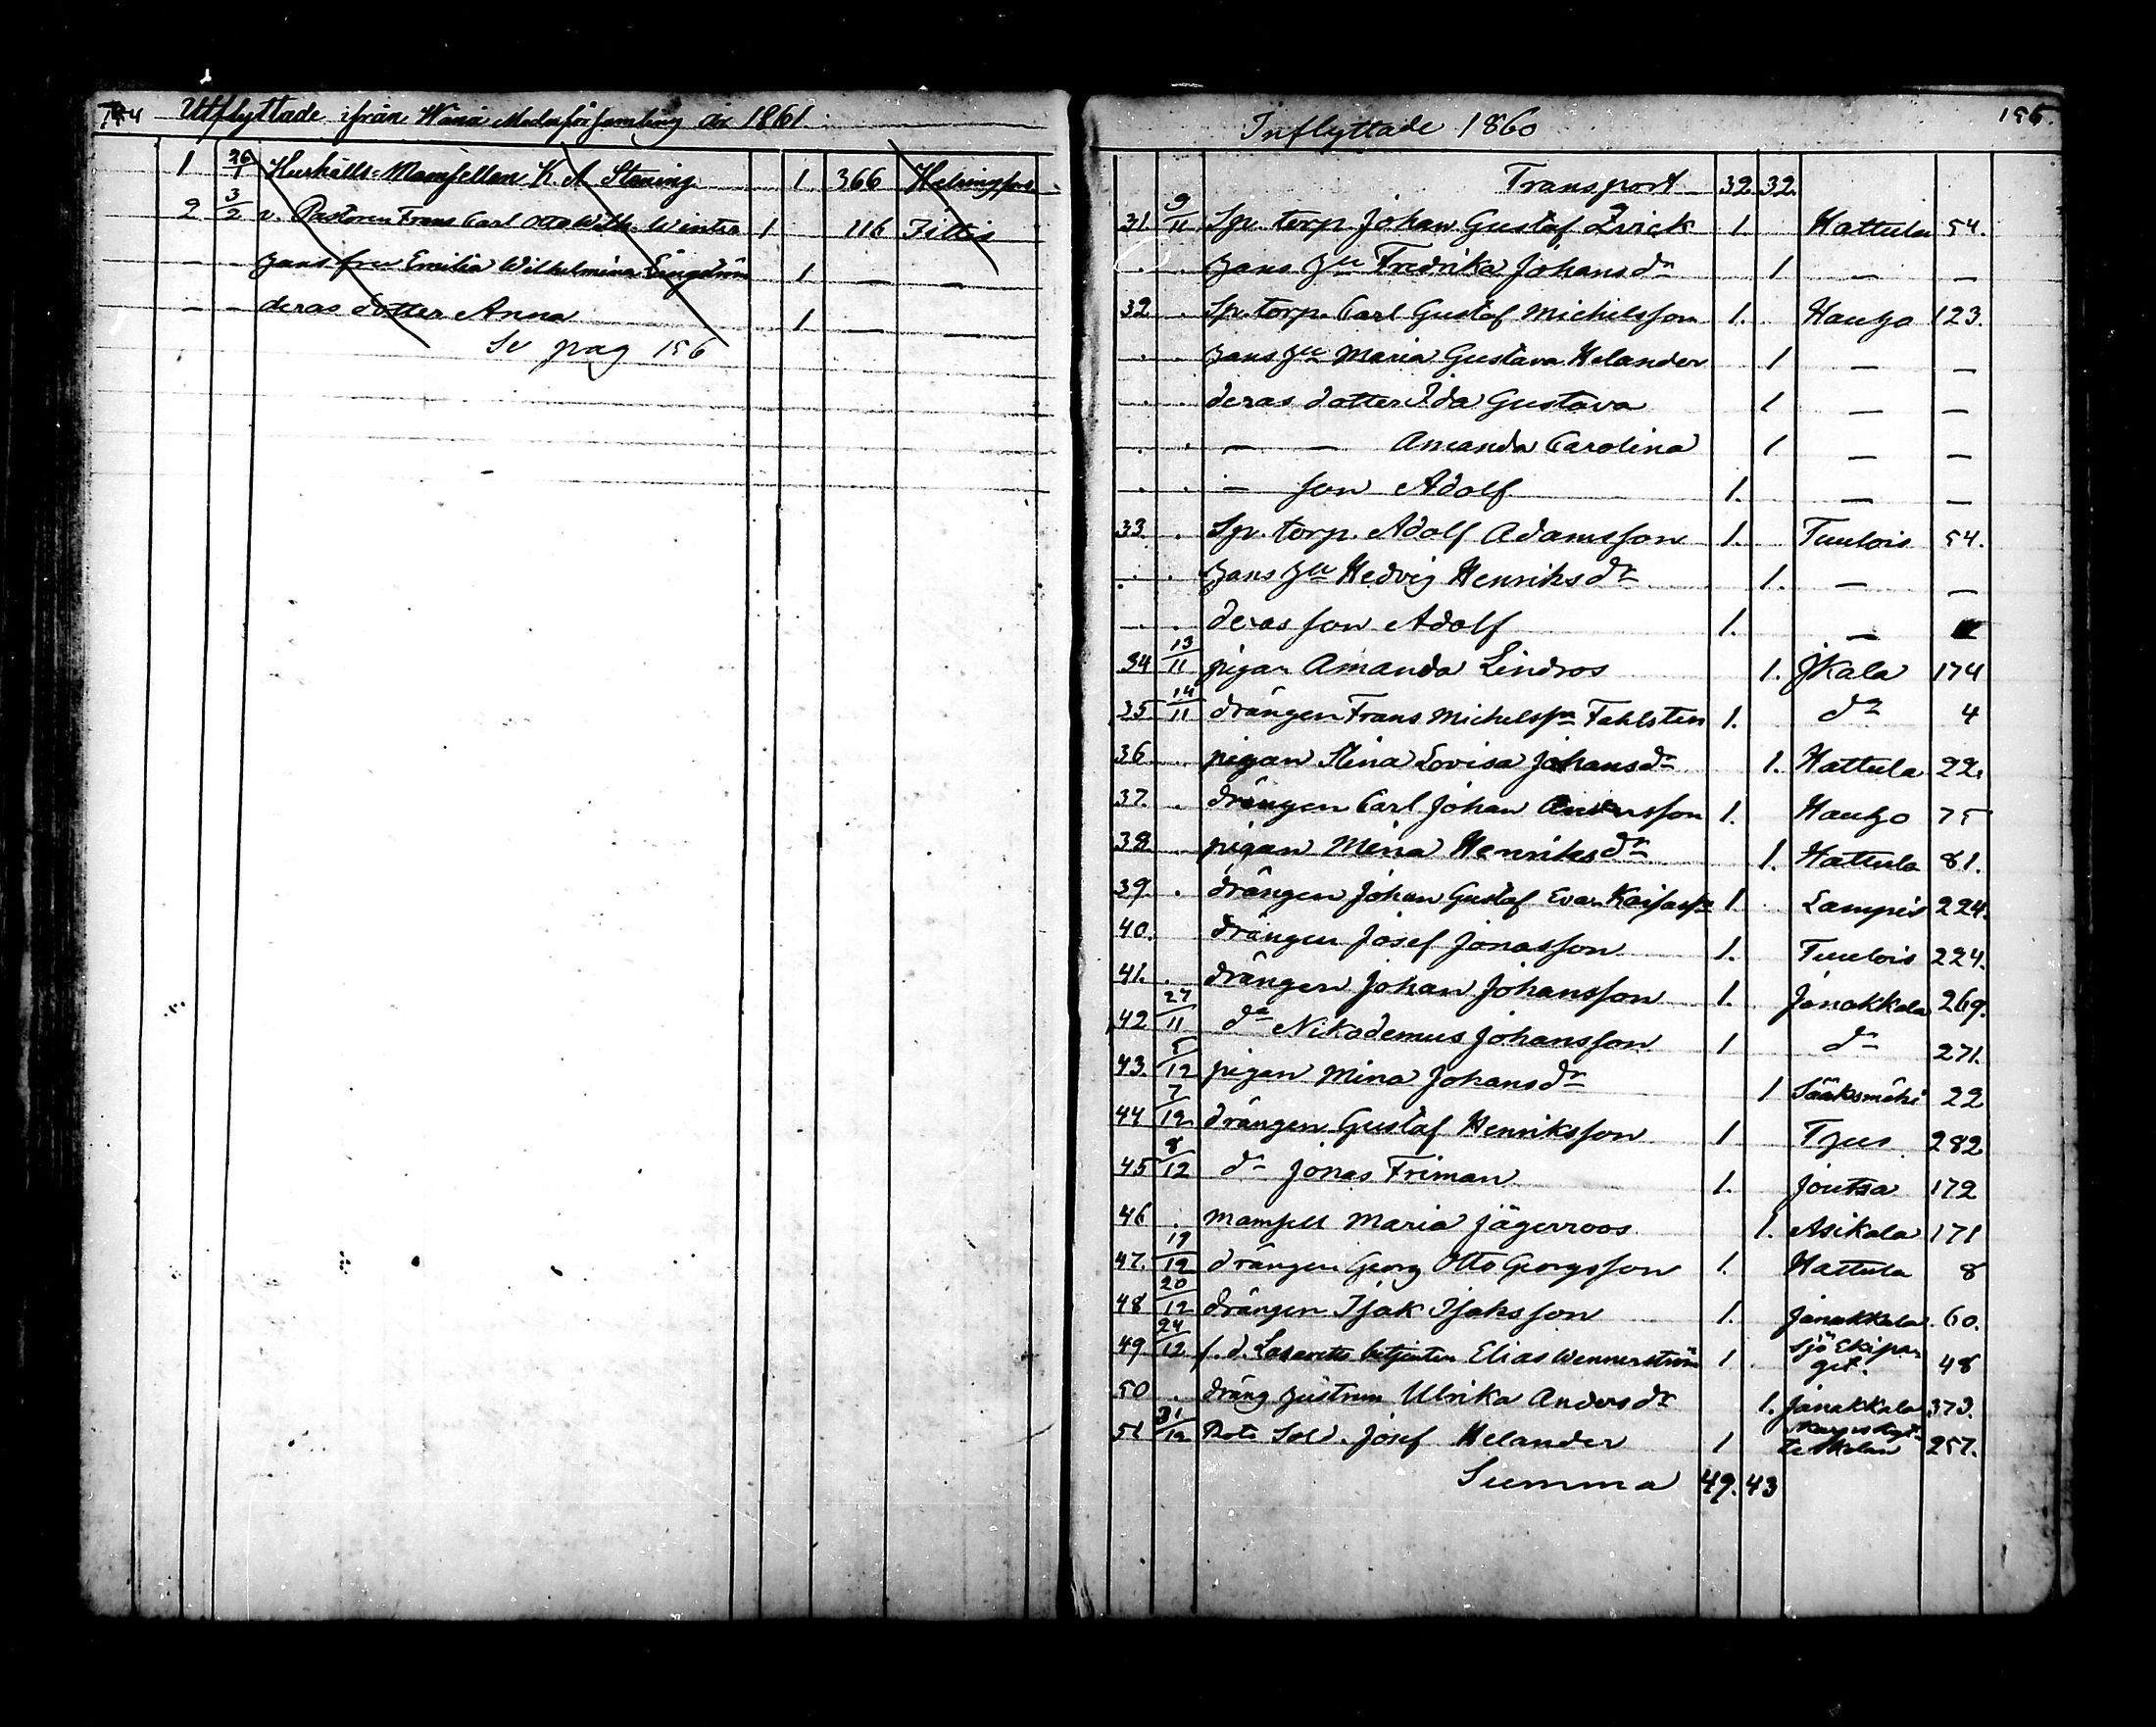 Utflyttade ifrån Wånå Moderförsamling år 1861.
1 26/1 Hushålls-Mamsellen K. A. Stening 1 366 Helsingfors
2 3/2 v. Pastoren Frans Carl Otto Wilh. Winter 1 116 Tittis
- - hans fru Emilia Wilhelmina 1 — —
- - deras dotter Anna 1 — —
Se pag 156
Inflyttade 1860 155.
Transport 32 32.
31 9/11 Sp. torp. Johan Gustaf Qvick 1. Hattula 54.
. . hans hu Fredrika Johansdr 1 — —
32 . Sp. torp. Carl Gustaf Michelsson 1. Hauho 123.
. . hans hu Maria Gustava Helander 1 — —
. . deras dotter Ida Gustava 1 — —
. . — — Amanda Carolina 1 — —
. . — son Adolf 1. — —
33. . Sp. torp. Adolf Adamsson 1. Tuulois 54.
. . hans hu Hedvig Henriksdr 1. — —
. . deras son Adolf 1. —
34 13/11 pigan Amanda Lindros 1. Jkala 174
35 14/11 drängen Frans Michelssn Fahlsten 1. do 4
36 . pigan Stina Lovisa Johansdr 1. Hattula 22.
37. . drängen Carl Johan Andersson 1. Hauho 75
38. . pigan Mina Henriksdr 1. Hattula 81.
39. . drängen Johan Gustaf Eva Kaisasn 1. Lampis 224.
40. drängen Josef Jonasson 1. Tuulois 224.
41. . drängen Johan Johansson 1. Janakkala 269.
42 27/11 do Nikodemus Johansson 1 do 271.
43. 5/12 pigan Mina Johansdr 1 Sääksmäki 22
44 7/12 drängen Gustaf Henriksson 1 Tyus 282
45 8/12 do Jonas Friman 1. Joutsa 172
46 . mamsell Maria Jägerroos 1. Asikala 171
47. 19/12 drängen Georg Otto Georgsson 1. Hattula 8
48 20/12 drängen Isak Isaksson 1. Janakkala 60.
49 24/12 f. d. Lasaretts betjenten Elias Wennerström 1 Sjö Ekipaget. 48
50 . dräng hustrun Ulrika Andersdr 1. Janakkala 373.
51 31/12 Rote Sold. Josef Helander 1 257.
Summa 49. 43